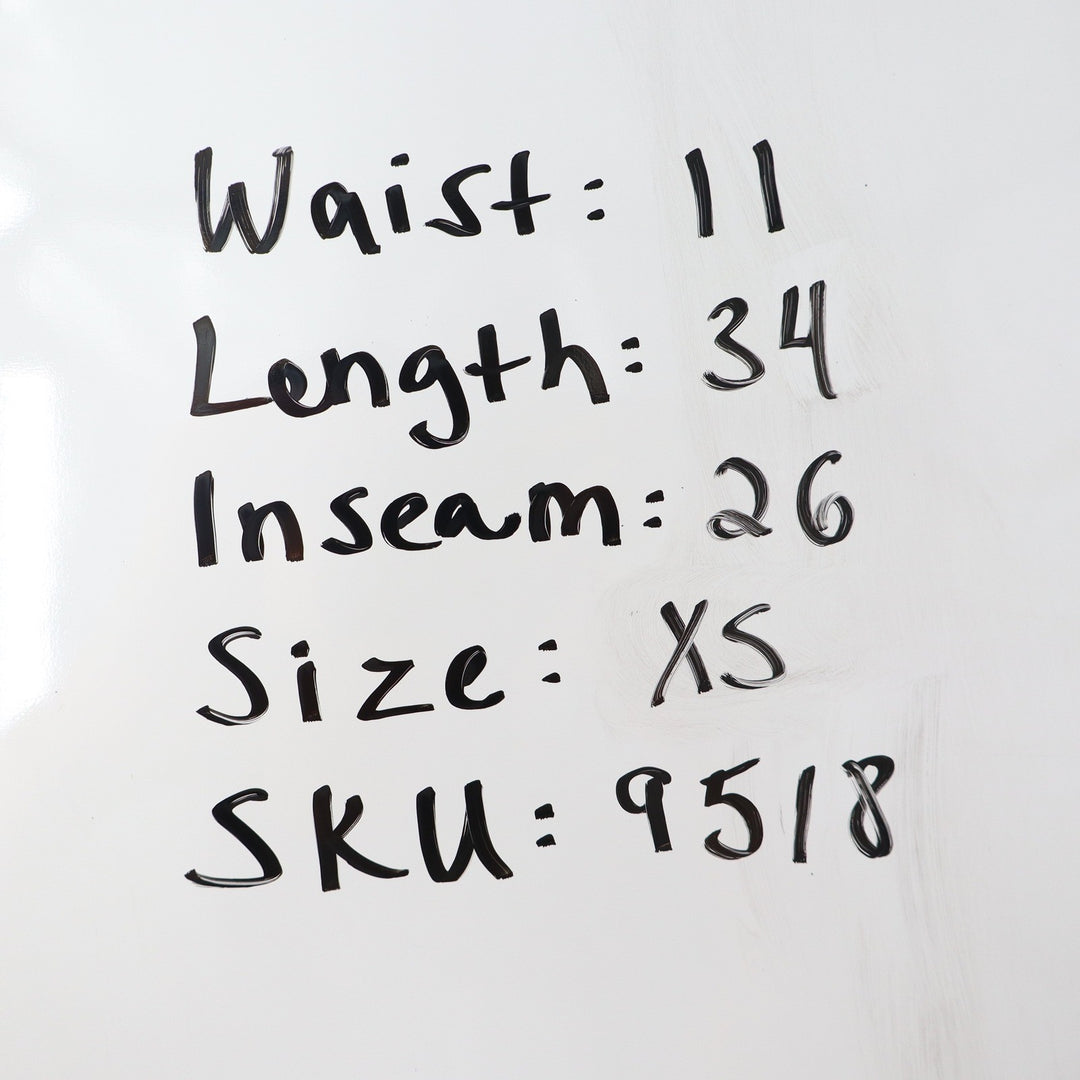 Waist: 11
Length: 34
Inseam: 26
Size: XS
SKU: 9518